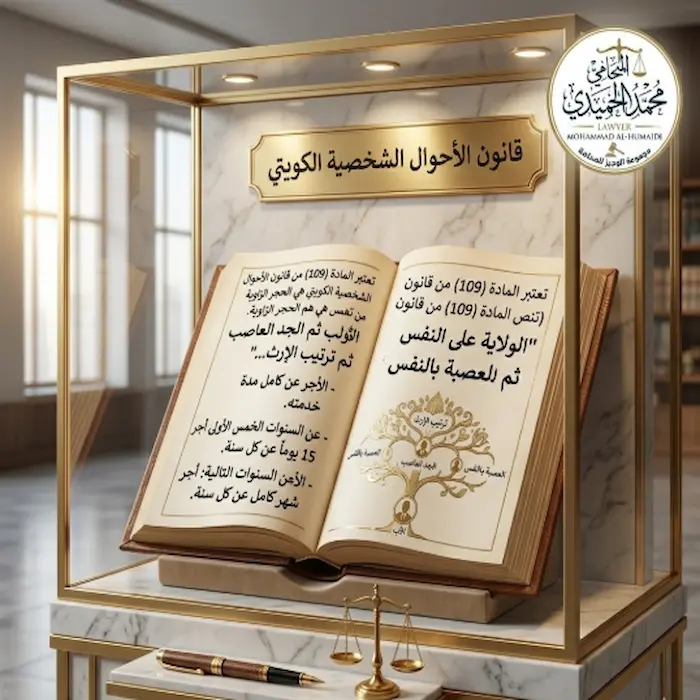 المحامي
محمد الحميدي
LAWYER
MOHAMMAD AL-HUMAIDI
مجموعة الوجيز للمحاماة
قانون الأحوال الشخصية الكويتي
تعتبر المادة (109) من قانون
(تنص المادة (109) من قانون
"الولاية على النفس
ثم للعصبة بالنفس
ترتيب الإرث
العصبة بالنفس
الجد العاصب
العصبة بالنفس
الأب
تعتبر المادة (109) من قانون الأحوال
الشخصية الكويتي هي الحجر الزاوية
من نفس هي هم الحجر الزاوية.
الأولب ثم الجد العاصب
ثم ترتيب الإرث..."
- الأجر عن كامل مدة
خدمته.
- عن السنوات الخمس الأولى أجر
15 يوماً عن كل سنة.
- الأمن السنوات التالية: أجر
شهر كامل عن كل سنة.